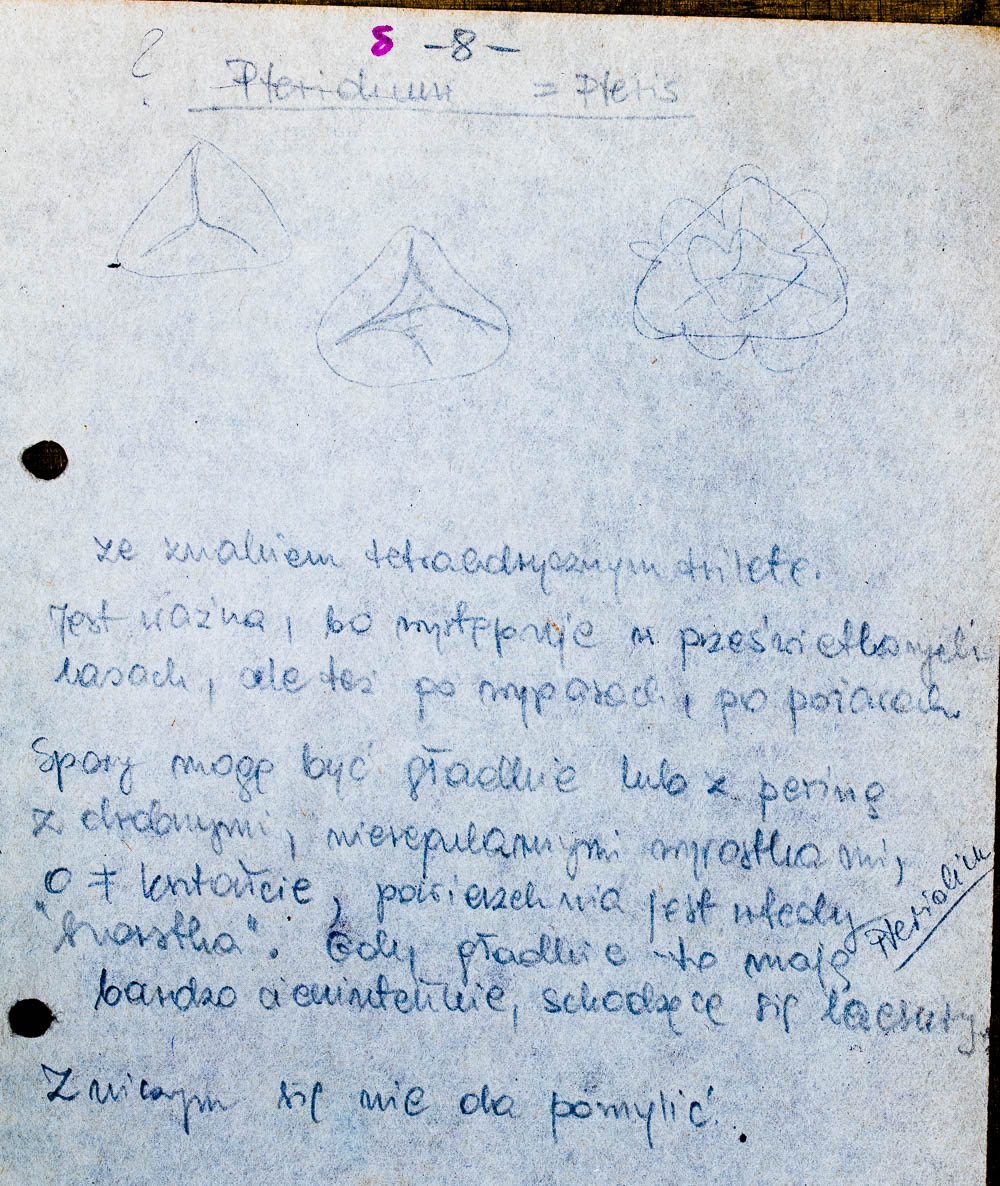 ? 8 -8-
Pteridium = Pteris
ze znakiem tetraedrycznym trilete.
Jest ważna, bo występuje w prześwietlonych
lasach, ale też po wypasach, po pożarach.
Spory mogą być gładkie lub z periną
z drobnymi, nieregularnymi wyrostkami,
o ≠ kształcie, powierzchnia jest wtedy
"szorstka". Gdy gładkie to mają
Pteridium
bardzo cieniuteńkie, schodzące się laesury.
Z niczym się nie da pomylić.